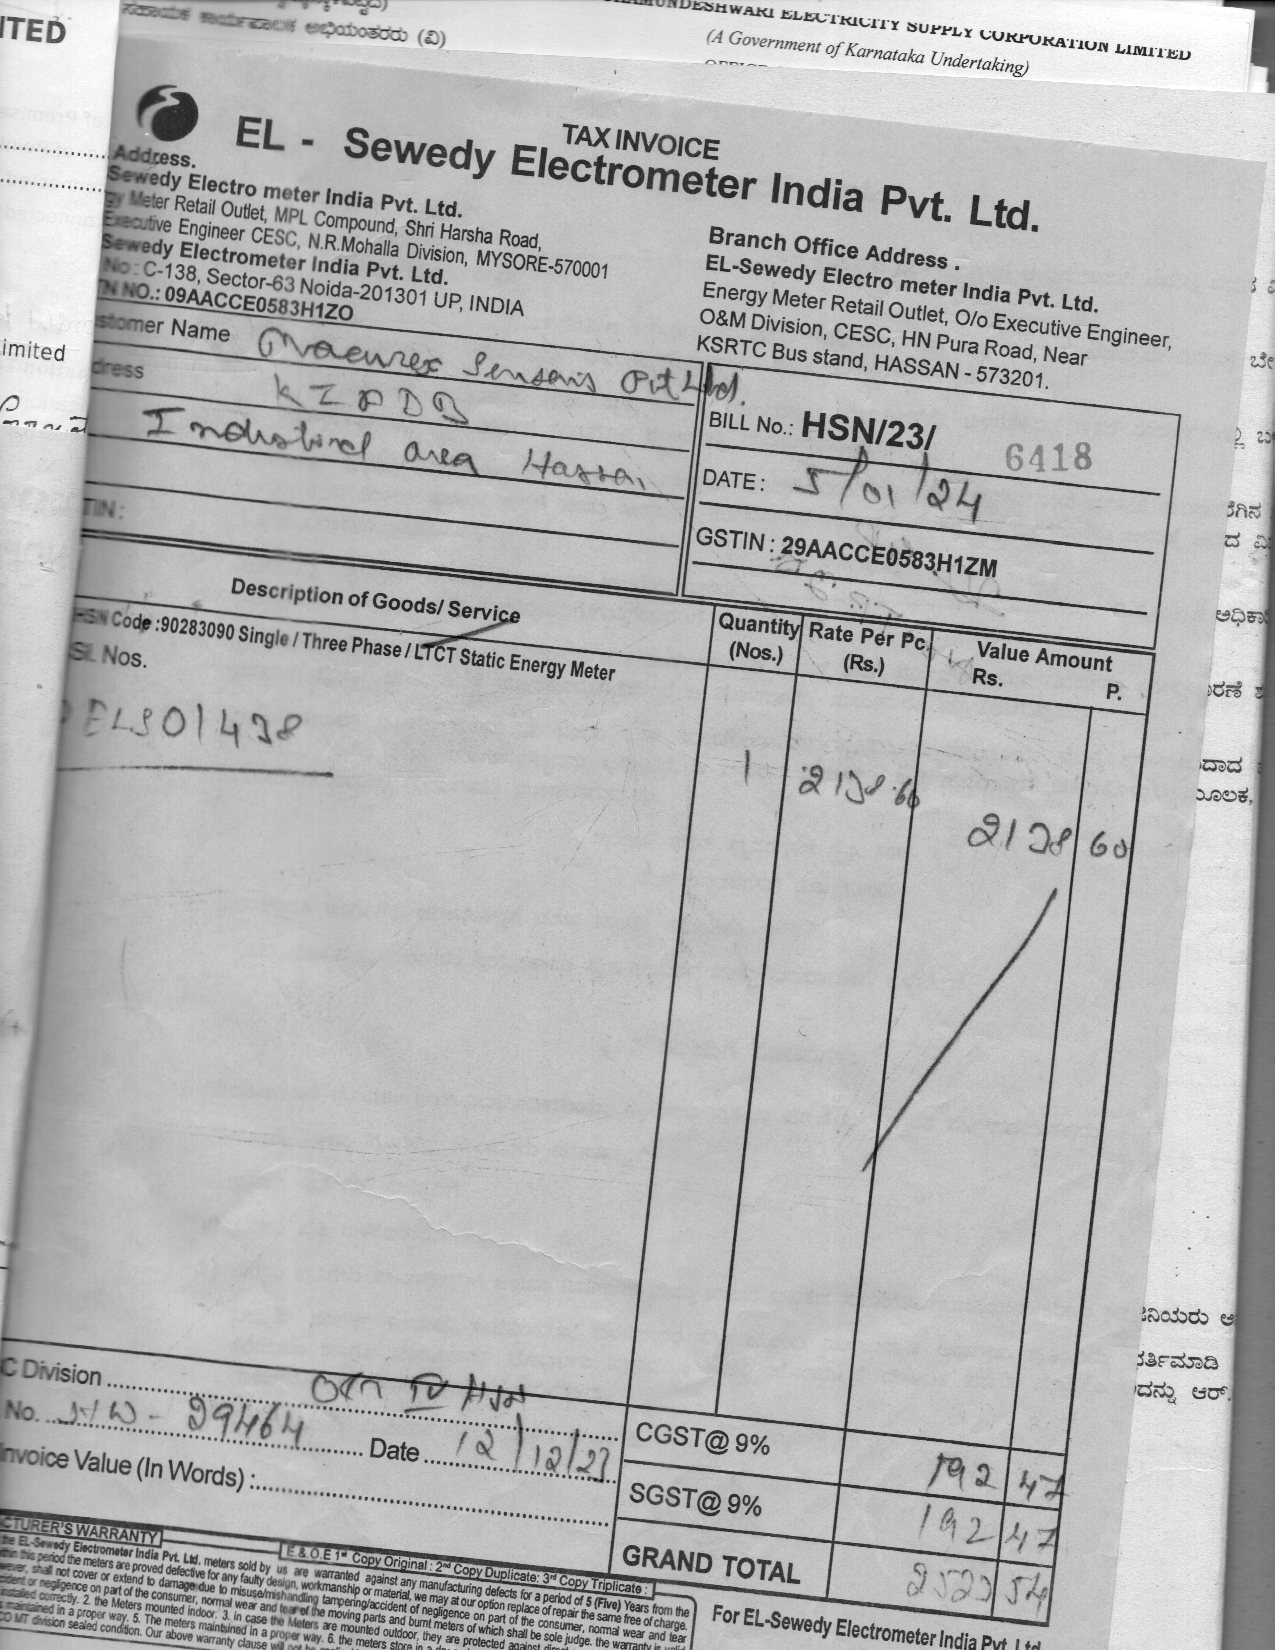 ITED
ಸಹಾಯಕ ಕಾರ್ಯಪಾಲಕ ಅಭಿಯಂತರರು (ವಿ)
MUNDESHWARI ELECTRICITY SUPPLY CORPORATION LIMITED
(A Government of Karnataka Undertaking)
TAX INVOICE
EL - Sewedy Electrometer India Pvt. Ltd.
Address.
Sewedy Electro meter India Pvt. Ltd.
gy Meter Retail Outlet, MPL Compound, Shri Harsha Road,
Executive Engineer CESC, N.R.Mohalla Division, MYSORE-570001
Sewedy Electrometer India Pvt. Ltd.
No : C-138, Sector-63 Noida-201301 UP, INDIA
TN NO.: 09AACCE0583H1ZO
Branch Office Address .
EL-Sewedy Electro meter India Pvt. Ltd.
Energy Meter Retail Outlet, O/o Executive Engineer,
O&M Division, CESC, HN Pura Road, Near
KSRTC Bus stand, HASSAN - 573201.
imited
stomer Name Sensors Pvt Ltd.
dress KIADB
Industrial area Hassan
TIN :
BILL No.: HSN/23/ 6418
DATE : 5/01/24
GSTIN : 29AACCE0583H1ZM
Description of Goods/ Service
Quantity (Nos.)
Rate Per Pc. (Rs.)
Value Amount
Rs. P.
HSN Code :90283090 Single / Three Phase / LTCT Static Energy Meter
SL Nos.
ELS01438
1 2138.60 2138 60
C Division
No. 29464 Date 12/12/23
Invoice Value (In Words) :
CGST@ 9% 192 47
SGST@ 9% 192 47
GRAND TOTAL 2523 54
CTURER'S WARRANTY
E.&.O.E 1st Copy Original : 2nd Copy Duplicate: 3rd Copy Triplicate :
the EL-Sewedy Electrometer India Pvt. Ltd. meters sold by us are warranted against any manufacturing defects for a period of 5 (Five) Years from the
within this period the meters are proved defective for any faulty design, workmanship or material, we may at our option replace of repair the same free of charge.
shall not cover or extend to damage due to misuse/mishandling tampering/accident of negligence on part of the consumer, normal wear and tear
or negligence on part of the consumer, normal wear and tear of the moving parts and burnt meters of which shall be sole judge. the warranty is valid
installed correctly. 2. the Meters mounted indoor. 3. in case the Meters are mounted outdoor, they are protected against
maintained in a proper way. 5. The meters maintained in a proper way. 6. the meters store in a
MT division sealed condition. Our above warranty clause will not be
For EL-Sewedy Electrometer India Pvt. Ltd.